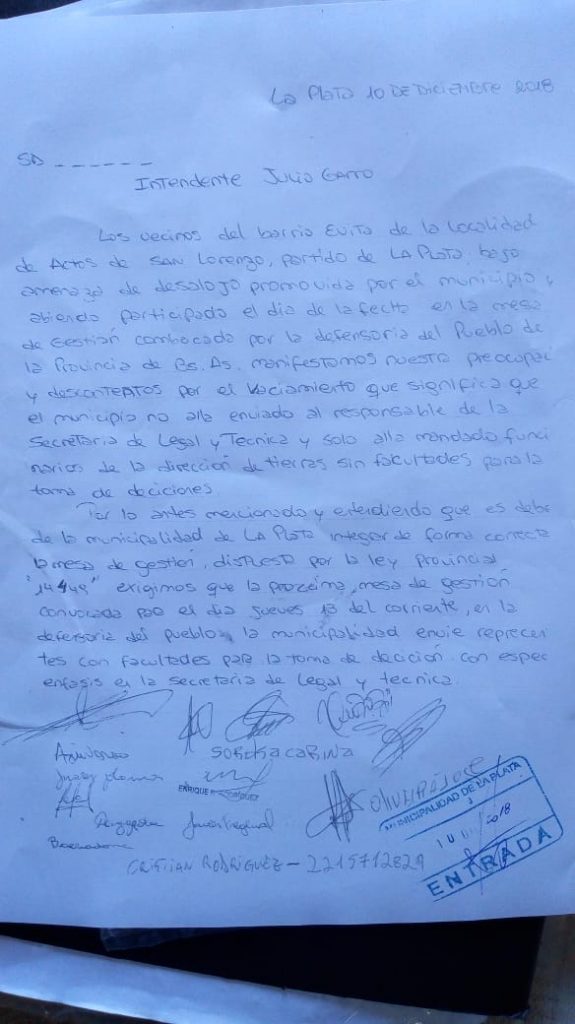 La Plata 10 DE Diciembre 2018
SD ------
Intendente Julio Garro
Los vecinos del barrio Evita de la localidad
de Altos de SAN Lorenzo, partido de LA Plata, bajo
amenaza de desalojo promovida por el municipio y
abiendo participado el dia de la fecha en la mesa
de Gestión combocada por la defensoria del Pueblo de
la Provincia de Bs. As. manifestamos nuestra preocupac
y descontentos por el Vaciamiento que significa que
el municipio no alla enviado al responsable de la
Secretaria de Legal y Tecnica y solo alla mandado funci
narios de la dirección de tierras sin facultades para la
toma de deciciones.
Por lo antes mencionado y entendiendo que es debe
de la municipalidad de LA Plata integrar de forma correcta
la mesa de gestión, dispuesta por la ley Provincial
"14449" exigimos que la proxima mesa de gestión
convocada para el dia jueves 13 del corriente, en la
defensoria del pueblo, la municipalidad envie reprecen
tes con facultades para la toma de decición con espec
enfasis en la Secretaria de Legal y tecnica.
ENRIQUE
MUNICIPALIDAD DE LA PLATA
2018
ENTRADA
CRISTIAN RODRIGUEZ - 2215712829